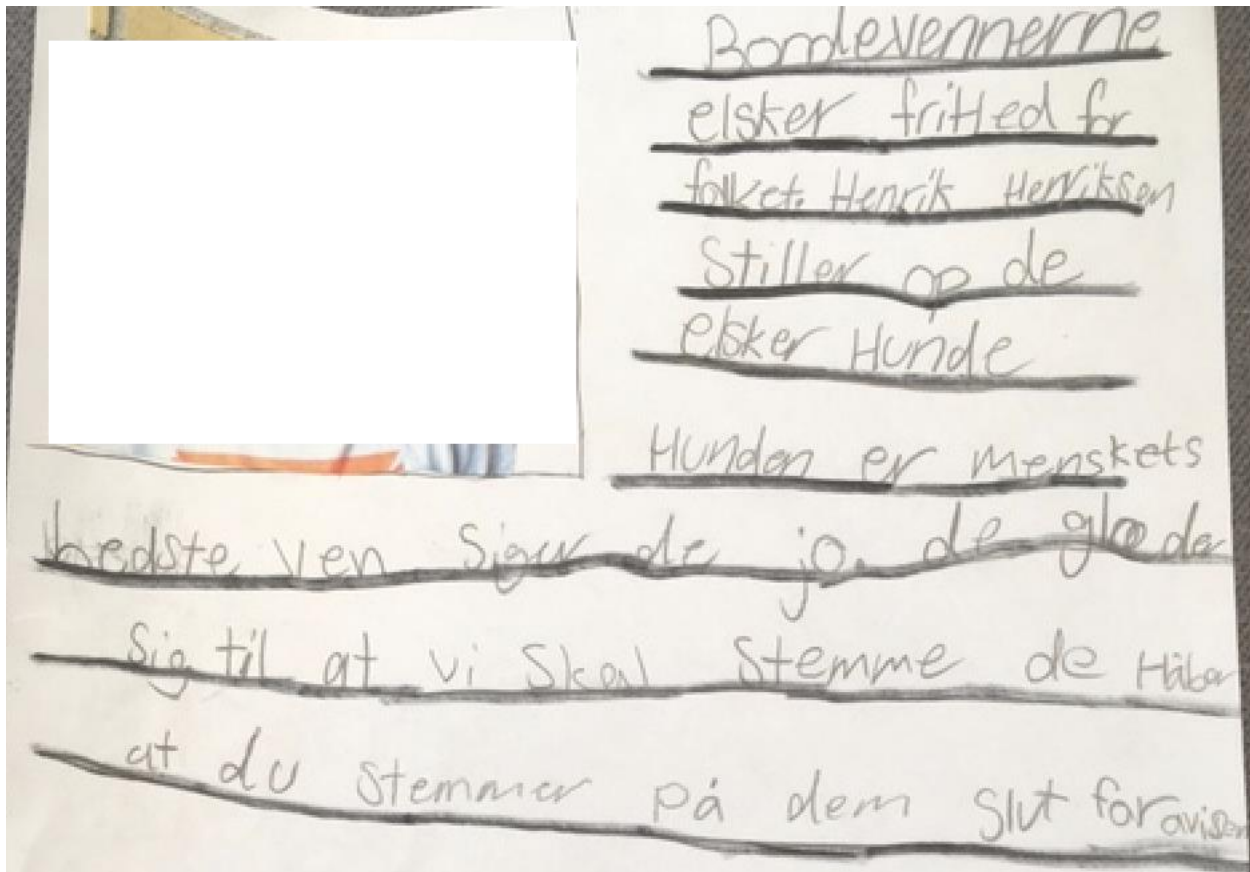 Bondevennerne
elsker friHed for
folket. Henrik Henriksen
Stiller op de
elsker Hunde
Hunden er menskets
bedste ven Siger de jo. de glæder
Sig til at vi Skal Stemme de Håber
at du stemmer på dem Slut for avisen